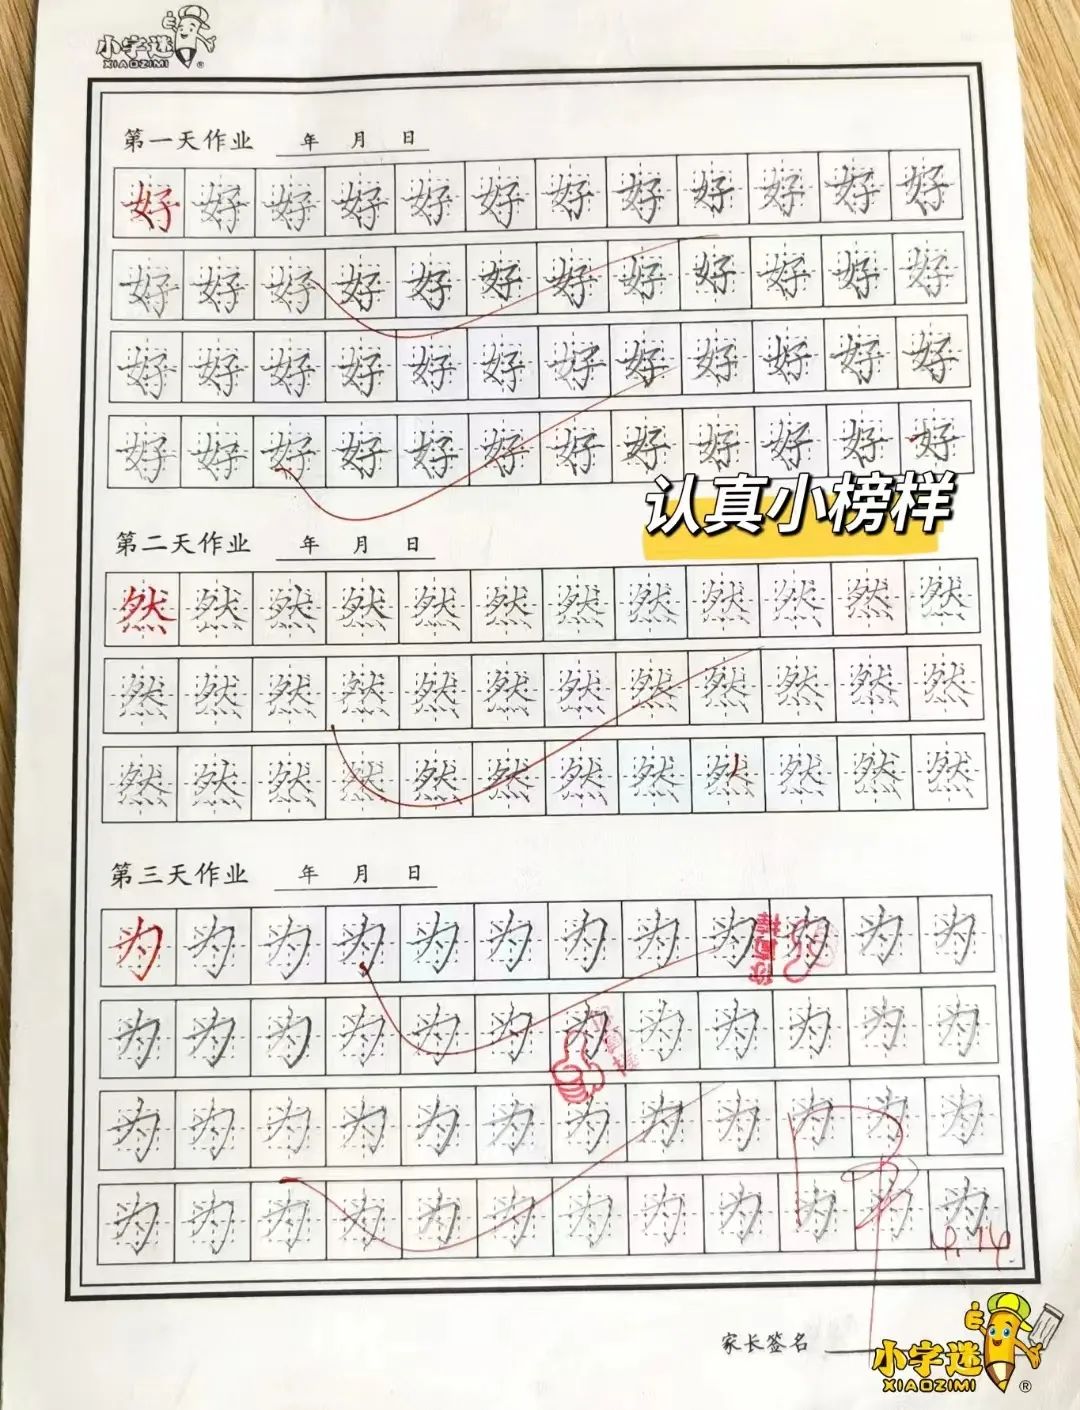 小字迷
XIAOZIMI ®
第一天作业 年 月 日
好 好 好 好 好 好 好 好 好 好 好 好
好 好 好 好 好 好 好 好 好 好 好 好
好 好 好 好 好 好 好 好 好 好 好 好
好 好 好 好 好 好 好 好 好 好 好 好
认真小榜样
第二天作业 年 月 日
然 然 然 然 然 然 然 然 然 然 然 然
然 然 然 然 然 然 然 然 然 然 然 然
然 然 然 然 然 然 然 然 然 然 然 然
第三天作业 年 月 日
为 为 为 为 为 为 为 为 为 为 为 为
为 为 为 为 为 为 为 为 为 为 为 为
为 为 为 为 为 为 为 为 为 为 为 为
为 为 为 为 为 为 为 为 为 为 为 为
家长签名
小字迷
XIAOZIMI ®